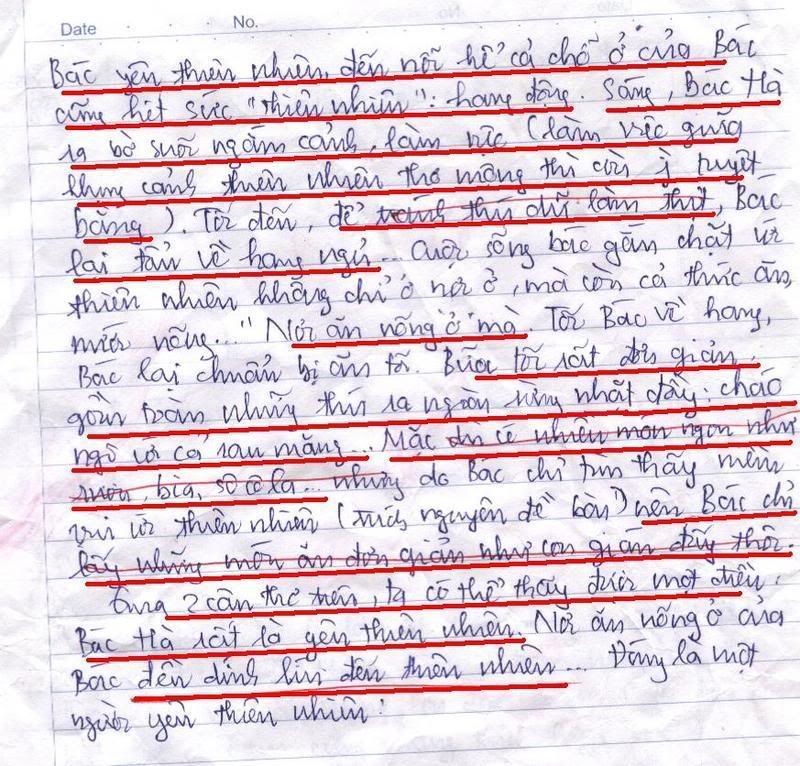 Date No.
Bác yên thiên nhiên, đến nỗi hể cả chỗ ở của Bác
cũng hết sức "thiên nhiên": hang động. Sáng, Bác Hà
ra bờ suối ngắm cảnh, làm việc (làm việc giữa
khung cảnh thiên nhiên thơ mộng thì còn j tuyệt
bằng). Tối đến, để tránh thú dữ làm thịt, Bác
lại tản về hang ngủ... Cuộc sống bác gắn chặt với
thiên nhiên không chỉ ở nơi ở, mà còn cả thức ăn,
nước nống... "Nơi ăn nống ở" mà. Tối Bác về hang,
Bác lại chuẩn bị ăn tối. Bữa tối rất đơn giản,
gồm toàn những thứ ra ngoài rừng nhặt đầy: cháo
ngô với cả rau măng... Mặc dù có nhiều món ngon như
rượu, bia, sô cô la... nhưng do Bác chỉ tìm thấy niềm
vui với thiên nhiên (trích nguyên đề bàn) nên Bác chỉ
lấy những món ăn đơn giản như con gián đấy thôi.
Qua 2 cân thơ trên, ta có thể thấy được một điền:
Bác Hà rất là yên thiên nhiên. Nơi ăn nống ở của
Bác đền dính líu đến thiên nhiên... Đúng là một
người yên thiên nhiên!